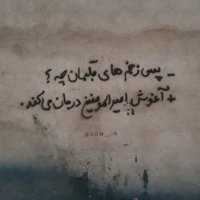 - پس زخم های قلبمان چه ؟
+ آغوش امیرالمومنین درمان می‌کند.